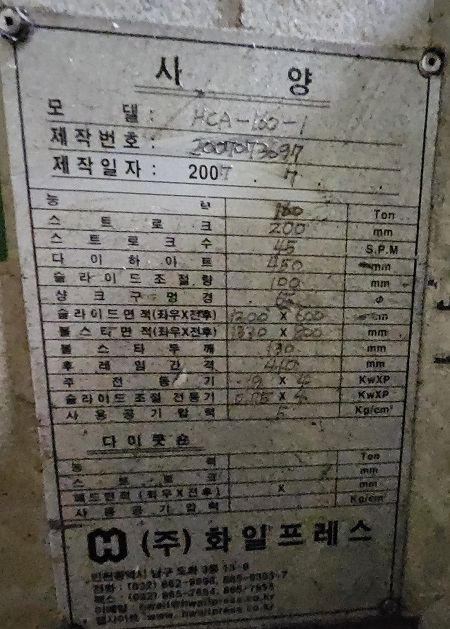 사 양
모 델 : HCA-160-1
제작번호 : 2007073697
제작일자 : 2007 . 7 .
능 력 160 Ton
스 트 로 크 200 mm
스 트 로 크 수 45 S.P.M
다 이 하 이 트 450 mm
슬라이드조절량 100 mm
생 크 구 멍 경 65 Φ
슬라이드면적(좌우X전후) 1200 X 600 mm
볼스타면적(좌우X전후) X 800 mm
볼 스 타 두 께 130 mm
후 레 임 간 격 410 mm
주 전 동 기 X 4 KwXP
슬라이드 조절 전동기 0.75 X 4 KwXP
사 용 공 기 압 력 5 Kg/cm²
다이쿳숀
능 력 Ton
스 트 로 크 mm
패드면적 (좌우X전후) X mm
사 용 공 기 압 력 Kg/cm²
(주) 화일프레스
인천광역시 남구 도화 3동
전화 : (032)
팩스 : (032)
이메일 :
웹사이트 : www. hwailpress.co.kr